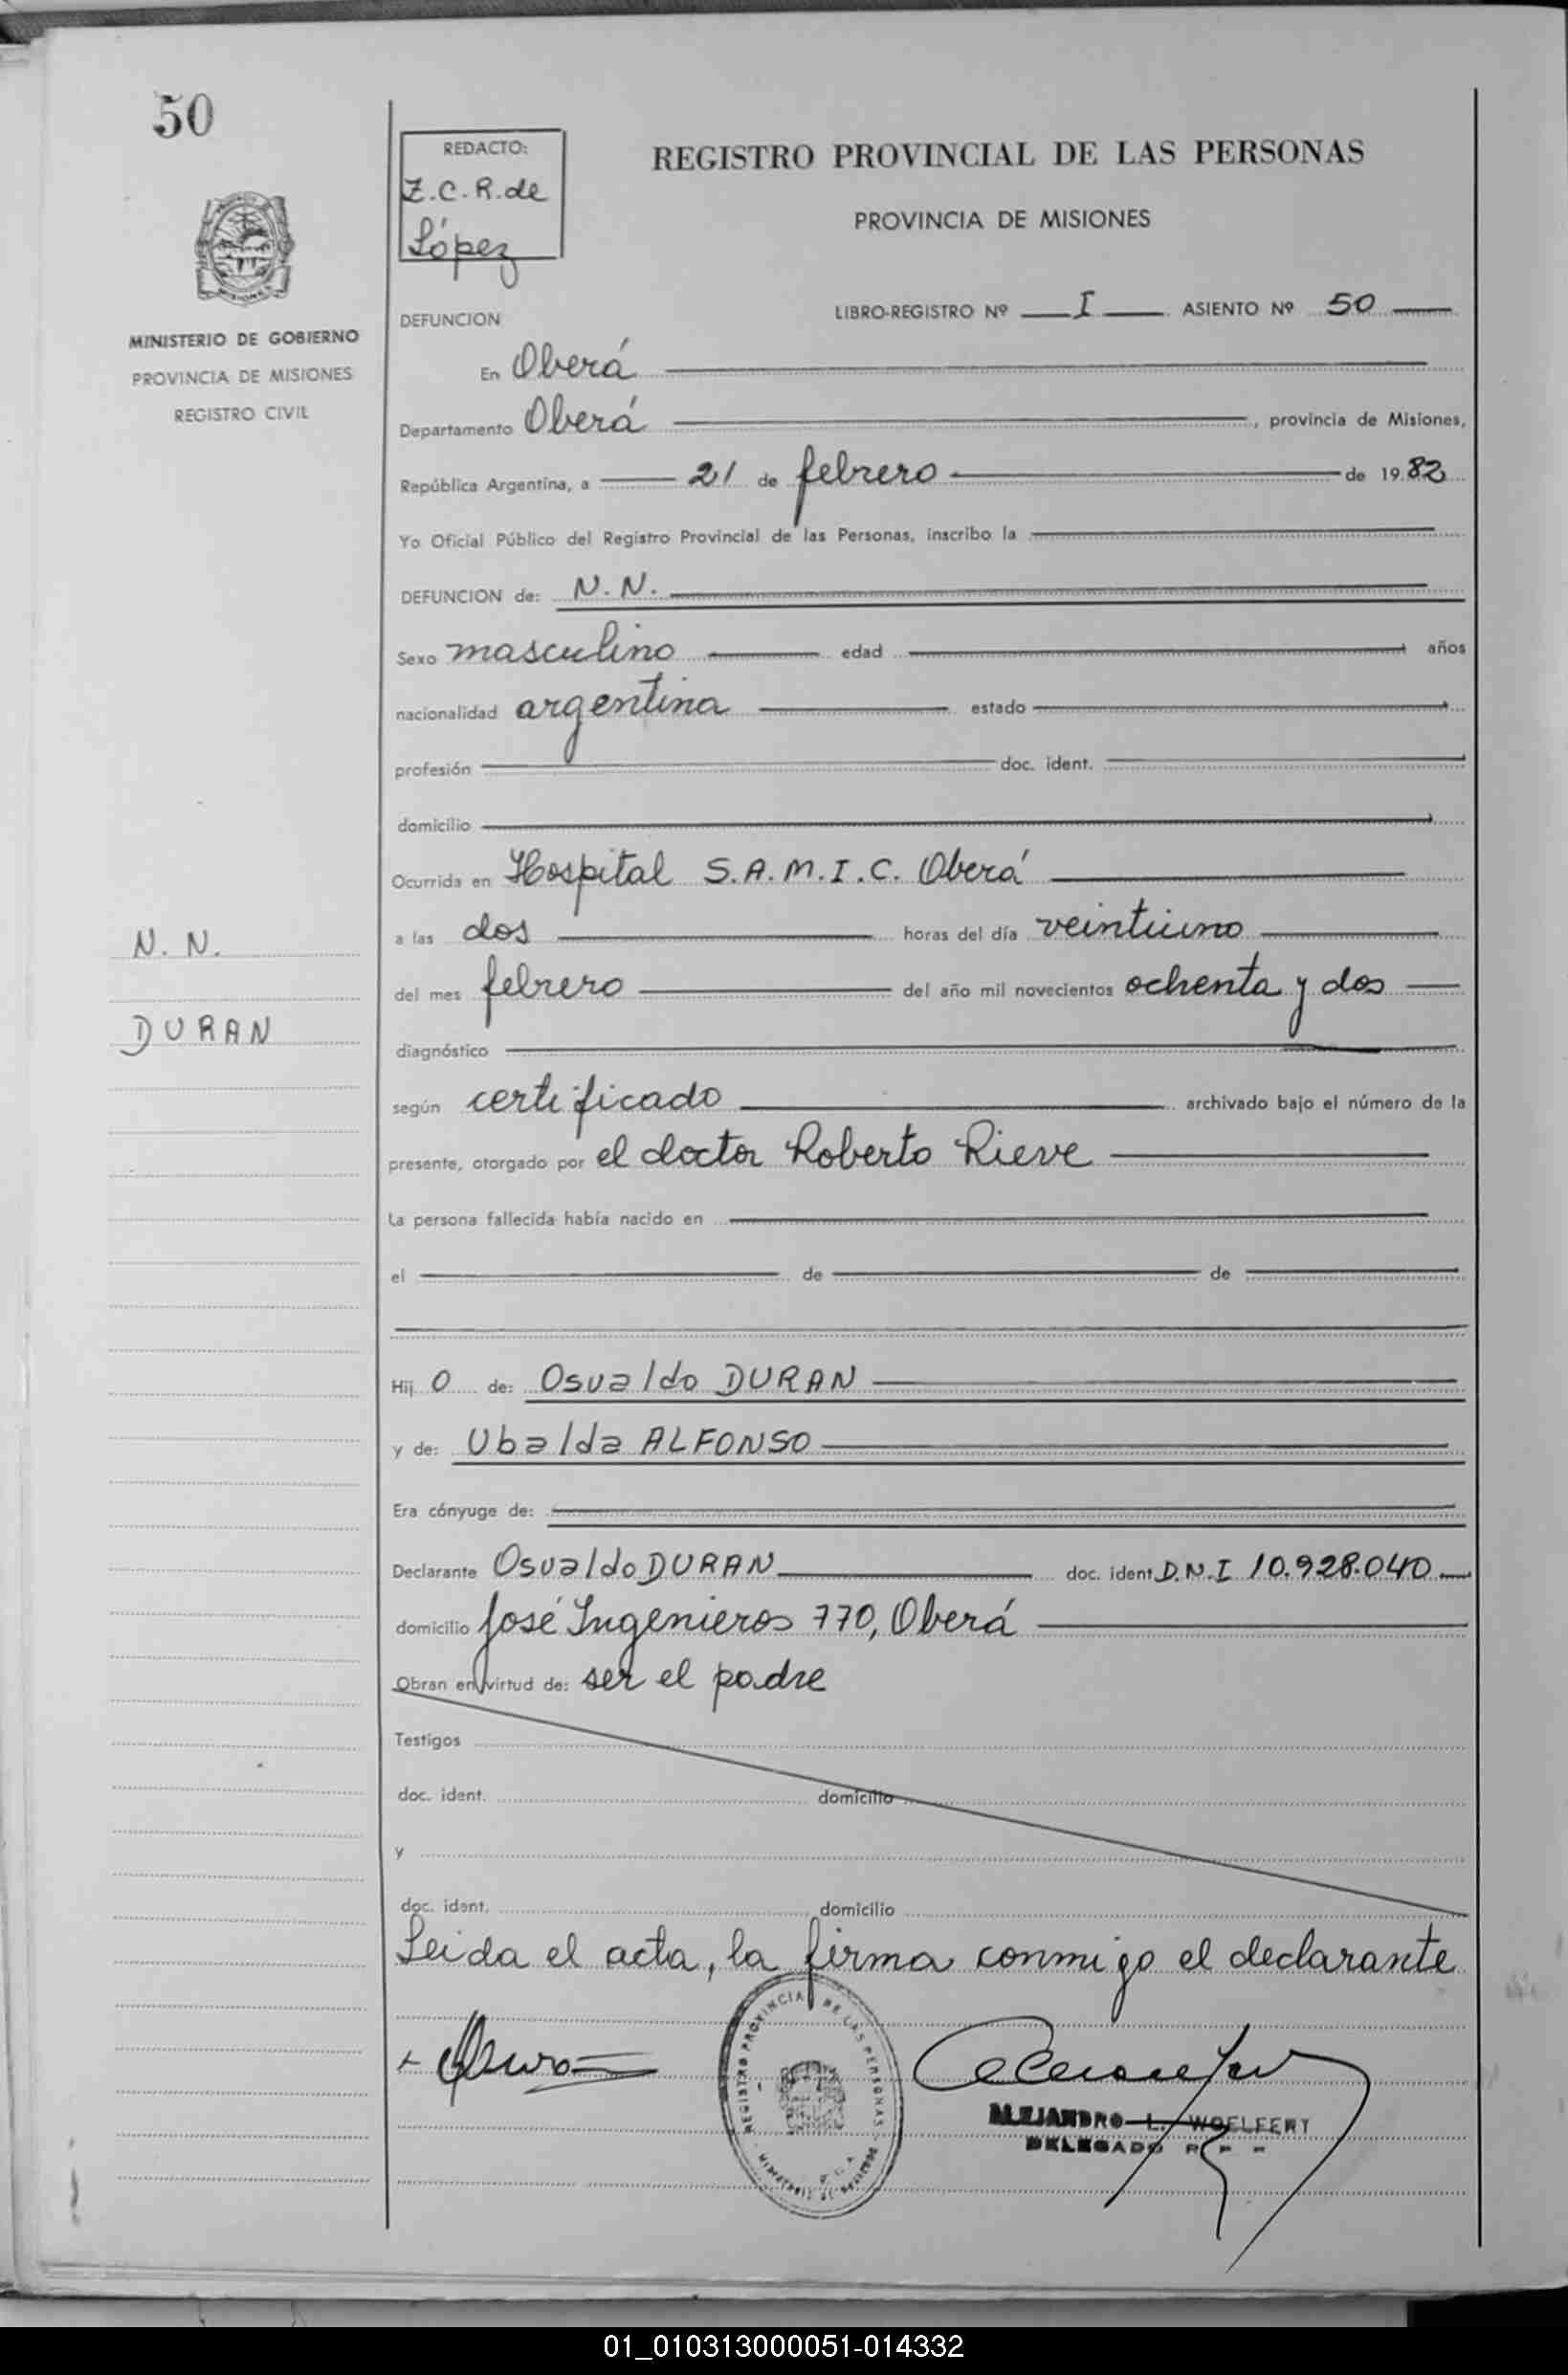 50
REDACTO:
Z.C.R.de
López
REGISTRO PROVINCIAL DE LAS PERSONAS
PROVINCIA DE MISIONES
MINISTERIO DE GOBIERNO
PROVINCIA DE MISIONES
REGISTRO CIVIL
LIBRO-REGISTRO Nº I ASIENTO Nº 50
DEFUNCION
En Oberá
Departamento Oberá, provincia de Misiones,
República Argentina, a 21 de febrero de 1982
Yo Oficial Público del Registro Provincial de las Personas, inscribo la
DEFUNCION de: N.N.
Sexo masculino edad años
nacionalidad argentina estado
profesión doc. ident.
domicilio
Ocurrida en Hospital S.A.M.I.C. Oberá
N. N.
DURAN
a las dos horas del día veintiuno
del mes febrero del año mil novecientos ochenta y dos
diagnóstico
según certificado archivado bajo el número de la
presente, otorgado por el doctor Roberto Rieve
La persona fallecida había nacido en
el de de
Hij o de: Osvaldo DURAN
y de: Ubalda ALFONSO
Era cónyuge de:
Declarante Osvaldo DURAN doc. ident D.N.I 10.928.040
domicilio José Ingenieros 770, Oberá
Obran en virtud de: ser el padre
Testigos
doc. ident. domicilio
y
doc. ident. domicilio
Leida el acta, la firma conmigo el declarante
REGISTRO PROVINCIAL DE LAS PERSONAS
ALEJANDRO L. WOELFERT
DELEGADO
01_010313000051-014332